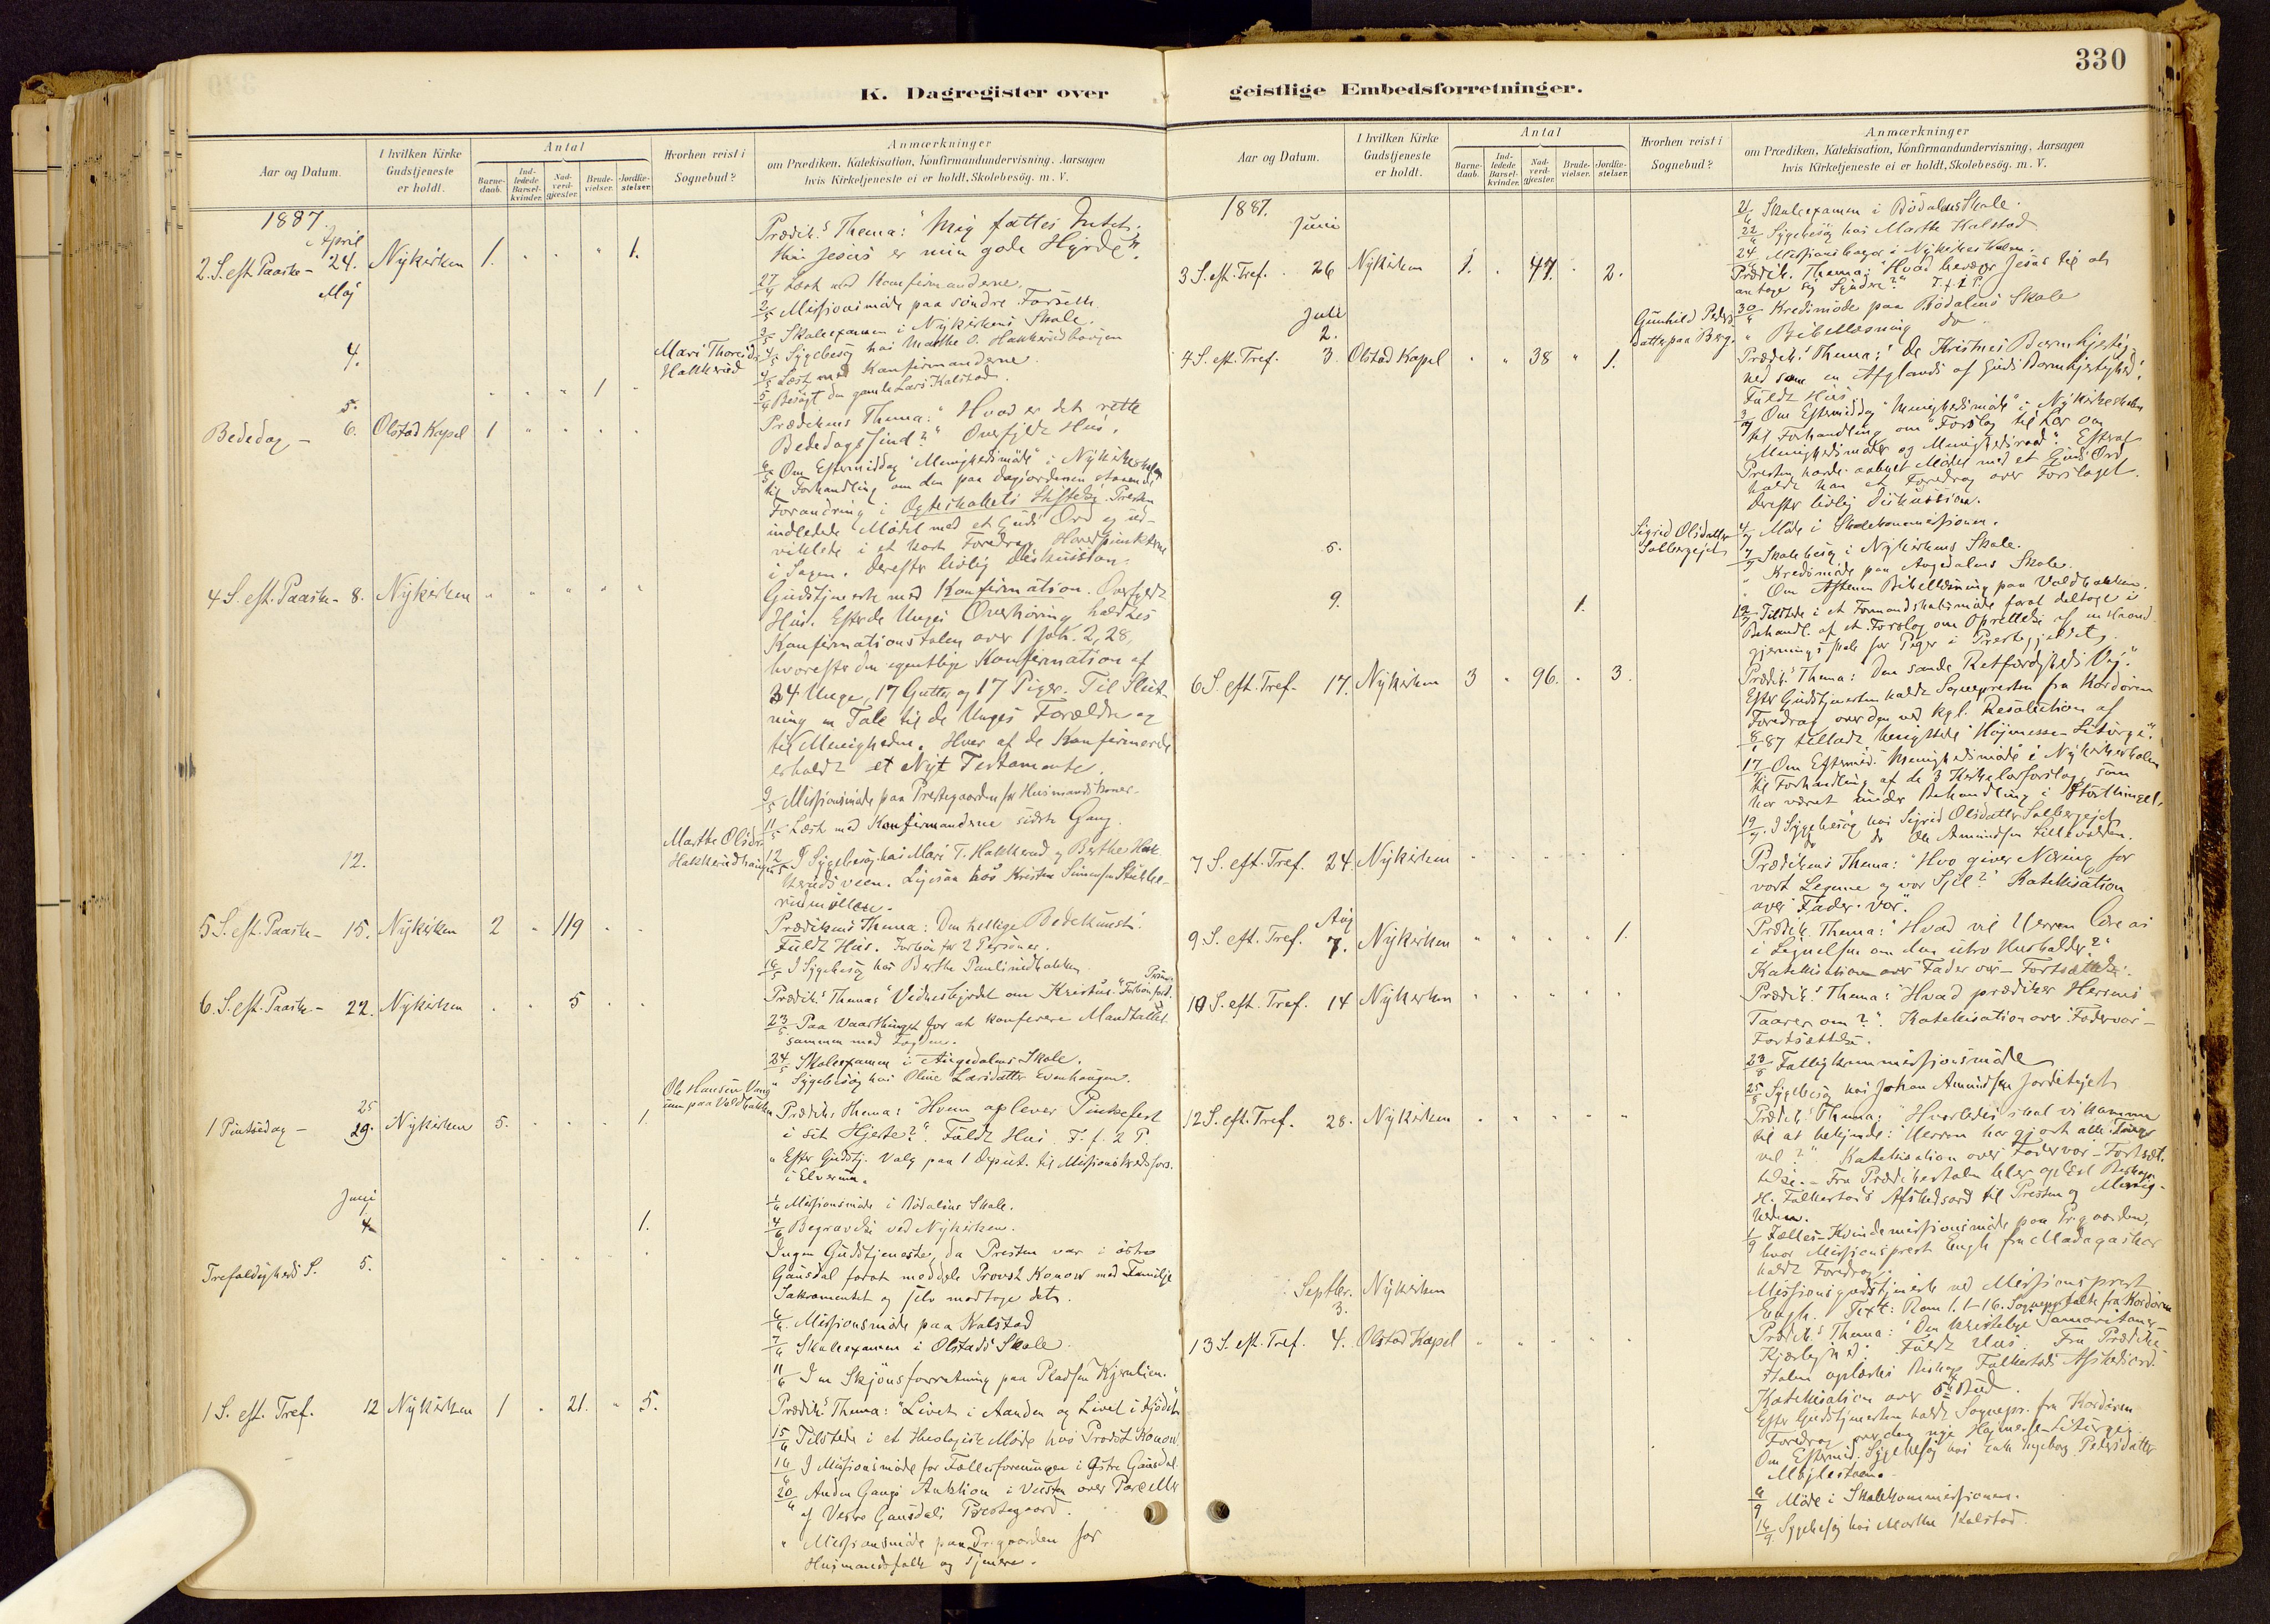 330
K. Dagregister over
geistlige Embedsforretninger.
Aar og Datum.
I hvilken Kirke Gudstjeneste er holdt.
Antal
Barnedaab.
Indledede Barselkvinder.
Nadverdgjæster.
Brudevielser.
Jordfæstelser.
Hvorhen reist i Sognebud?
Anmærkninger
om Prædiken, Katekisation, Konfirmandundervisning, Aarsagen
hvis Kirketjeneste ei er holdt, Skolebesög. m. V.
1887.
April
2. S. eft. Paaske - 24. Nykirken 1. " " " 1.
Prædik.s Thema: "Mig fattes Intet.
thi Jesus er min gode Hyrde".
27/4 Læst med Konfirmanderne.
Maj
2/5 Missionsmöde paa söndre Forseth
3/5 Skoleexamen i Nykirkens Skole.
4. Mari Thoresdr Hakkerud
4/5 Sygebesög hos Marthe O. Hakkerudhaugen
4/5 Læst med Konfirmanderne.
5. " " " 1 "
5/5 Besögt den gamle Lars Kalstad.
Bededag - 6. Olstad Kapel 1 " " " "
Prædikens Thema: "Hvad er det rette
Bededagssind?" Overfyldt Hus.
6/5 Om Eftermiddag "Menighedsmöde" i Nykirkeskolen
til Forhandling om den paa dagsordenen staaende
Forandring i Ægteskabets Stiftelse. Presten
indledede Mödet med et Guds Ord og ud-
viklede i et kort Foredrag Hovedpunkterne
i Sagen. Derefter livlig Diskussion.
4 S. eft. Paaske - 8. Nykirken " " " " "
Gudstjeneste med Konfirmation. Overfyldt
Hus. Efter de Unges Overhöring holdtes
Konfirmationstalen over 1 Joh. 2, 28,
hvorefter den egentlige Konfirmation af
34 Unge, 17 Gutter og 17 Piger. Til Slut-
ning en Tale til de Unges Forældre og
til Menigheden. Hver af de Konfirmerede
erholdt et Nyt Testamente.
9/5 Missionsmöde paa Prestegaarden for Husmandskoner.
11/5 Læst med Konfirmanderne sidste Gang.
12. Marthe Olsdr Hakkerudhaugen
12/5 I Sygebesög hos Mari T. Hakkerud og Berthe Hak-
kerudsveen. Ligesaa hos Kristen Simensen Stukke-
rudmöllen.
5 S. eft. Paaske - 15. Nykirken 2 " 119 " "
Prædikens Thema: Den hellige Bedekunst.
Fuldt Hus. Forbön for 2 Personer.
16/5 I Sygebesög hos Berthe Paulsrudbakken
6. S. eft. Paaske - 22. Nykirken " " 5 " "
Prædik.s Thema: "Vidnesbyrdet om Kristus."
23/5 Paa Vaarthinget for at konferere Mandtallet
sammen med Fogden.
24/5 Skoleexamen i Augedalens Skole.
" Sygebesög hos Oline Larsdatter Evenhaugen.
25 Ole Hansen Vang
1 Pintsedag - 29. Nykirken 5. " " " 1.
Prædikens Thema: "Hvem oplever Pintsefest
i sit Hjerte?". Fuldt Hus. F. f. 2 P.
" Efter Gudstj. Valg paa 1 deput. til Missionskredsfors.
i Elverum.
Juni
1/6 Missionsmöde i Bödalens Skole.
4 1.
4/6 Begravelse ved Nykirken.
Trefoldigheds S. 5. " " " " "
Ingen Gudstjeneste, da Presten var i östre
Gausdal forat meddele Provst Konow med Familje
Sakramentet og selv modtage det.
6/6 Missionsmöde paa Kalstad
7/6 Skoleexamen i Olstads Skole.
11/6 I en Skjönsforretning paa Pladsen Kjernlien.
1 S. eft. Tref. 12 Nykirken 1 " 21. " 5.
Prædik.s Thema: "Livet i Aanden og Livet i Kjödet"
15/6 Tilstede i et theologisk Möde hos Provst Konow.
16/6 I Missionsmöde for Fællesforeningen i Östre Gausdal
20/6 Anden Gangs Auktion i Veisten over Parceller
af Vestre Gausdals Prestegaard.
" Missionsmöde paa Pr.gaarden for
Husmandsfolk og Tjenere.
Aar og Datum.
I hvilken Kirke Gudstjeneste er holdt.
Antal
Barnedaab.
Indledede Barselkvinder.
Nadverdgjæster.
Brudevielser.
Jordfæstelser.
Hvorhen reist i Sognebud?
Anmærkninger
om Prædiken, Katekisation, Konfirmandundervisning, Aarsagen
hvis Kirketjeneste ei er holdt, Skolebesög. m. V.
1887.
Juni
21/6 Skoleexamen i Bödalens Skole.
22/6 Sygebesög hos Marthe Kalstad
24/6 Missionsbazar i Nykirkeskolen.
3 S. eft. Tref. 26 Nykirken 1. " 47. " 2.
Prædik. Thema: "Hvad bevæger Jesus til at
antage sig Syndere?" F. f. 1 P.
30/6 Kredsmöde paa Bödalens Skole
Juli
2. Gunhild Peders-
datter paa Berg.
" Bibellæsning do.
4 S. eft. Tref. 3. Olstad Kapel " " 38 " 1.
Prædik.s Thema: "De Kristnes Barmhjertig-
hed som en Afglands af Guds Barmhjertighed".
Fuldt Hus.
3/7 Om Eftermiddag "Menighedsmöde" i Nykirkeskolen
til Forhandling om "Forslag til Lov om
Menighedsmöder og Menighedsraad". Efterat
Presten havde aabnet Mödet med et Guds Ord
holdt han et Foredrag over Forslaget.
Derefter livlig Diskussion.
5. Sigrid Olsdatter
Solbergejet
4/7 Möde i Skolekommissionen.
7/7 Skolebesög i Nykirkens Skole.
" Kredsmöde paa Augedalens Skole.
" Om Aftenen Bibellæsning paa Voldbakken.
9. 1.
12/7 Tilstede i et Formandskabsmöde forat deltage i
Behandl. af et Forslag om Oprettelse af en Haand-
gjerningsskole for Piger i Prestegjeldet.
6 S. eft. Tref. 17. Nykirken 3 " 96. " 3.
Prædik.s Thema: Den sande Retfærdigheds Vej."
Efter Gudstjenesten holdt Sognepresten fra Kordören
Foredrag over den ved kgl. Resolution af
8/1 87 tilladt benyttede "Höjmesse-Liturgi".
17/7 Om Eftermid. Menighedsmöde i Nykirkeskolen
til Forhandling af de 3 Kirkelovforslag, som
har været under Behandling i Storthinget.
19/7 I Sygebesög hos Sigrid Olsdatter Solbergejet
" do Ole Amundsen Lillevolden.
7 S. eft. Tref. 24. Nykirken " " " " "
Prædikens Thema: "Hvo giver Næring for
vort Legeme og vor Sjel?" Katekisation
over "Fader vor".
Aug
9 S. eft. Tref. 7. Nykirken " " " " 1.
Prædik. Thema: "Hvad vil Herren lære os
i Lignelsen om den utro Husholder?"
Katekisation over Fader vor - Fortsættelse.
10 S. eft. Tref. 14 Nykirken " " " " "
Prædik.s Thema: "Hvad prædiker Herrens
Taarer om?". Katekisation over "Fader vor" -
Fortsættelse.
23/8 Fattigkommissionsmöde
25/8 Sygebesög hos Johan Amundsen Jordetejet
12 S. eft. Tref. 28. Nykirken " " " " "
Prædik.s Thema: "Hvorledes skal vi komme
til at bekjende: "Herren har gjort alle Ting
vel?" Katekisation over Fader vor - Fortsæt-
telse. - Fra Prædikestolen blev oplæst Biskop
H. Falkerts Afskedsord til Presten og Menig-
heden.
1/9 Fælles-Kvindemissionsmöde paa Pr.gaarden,
hvor Missionsprest Engh fra Madagaskar
holdt Foredrag.
Septbr. 3. Nykirken
Missionsgudstjeneste ved Missionsprest
Engh. Text: Rom. 1. 1-16.
13 S. eft. Tref. 4. Olstad Kapel " " " " "
Prædik.s Thema: "Den kristelige Samaritaner-
Kjærlighed". Fuldt Hus. Fra Prædike-
stolen oplæstes Biskop Falkerts Afskedsord.
Katekisation over 5te Bud.
Efter Gudstjenesten holdt Sognepr. fra Kordören
Foredrag over den nye Höjmesse-Liturgi.
Om Eftermid. Sygebesög hos Enke Ingeborg Pedersdatter
6/9 Möde i Skolekommissionen.
16/9 Sygebesög hos Marthe Kalstad.